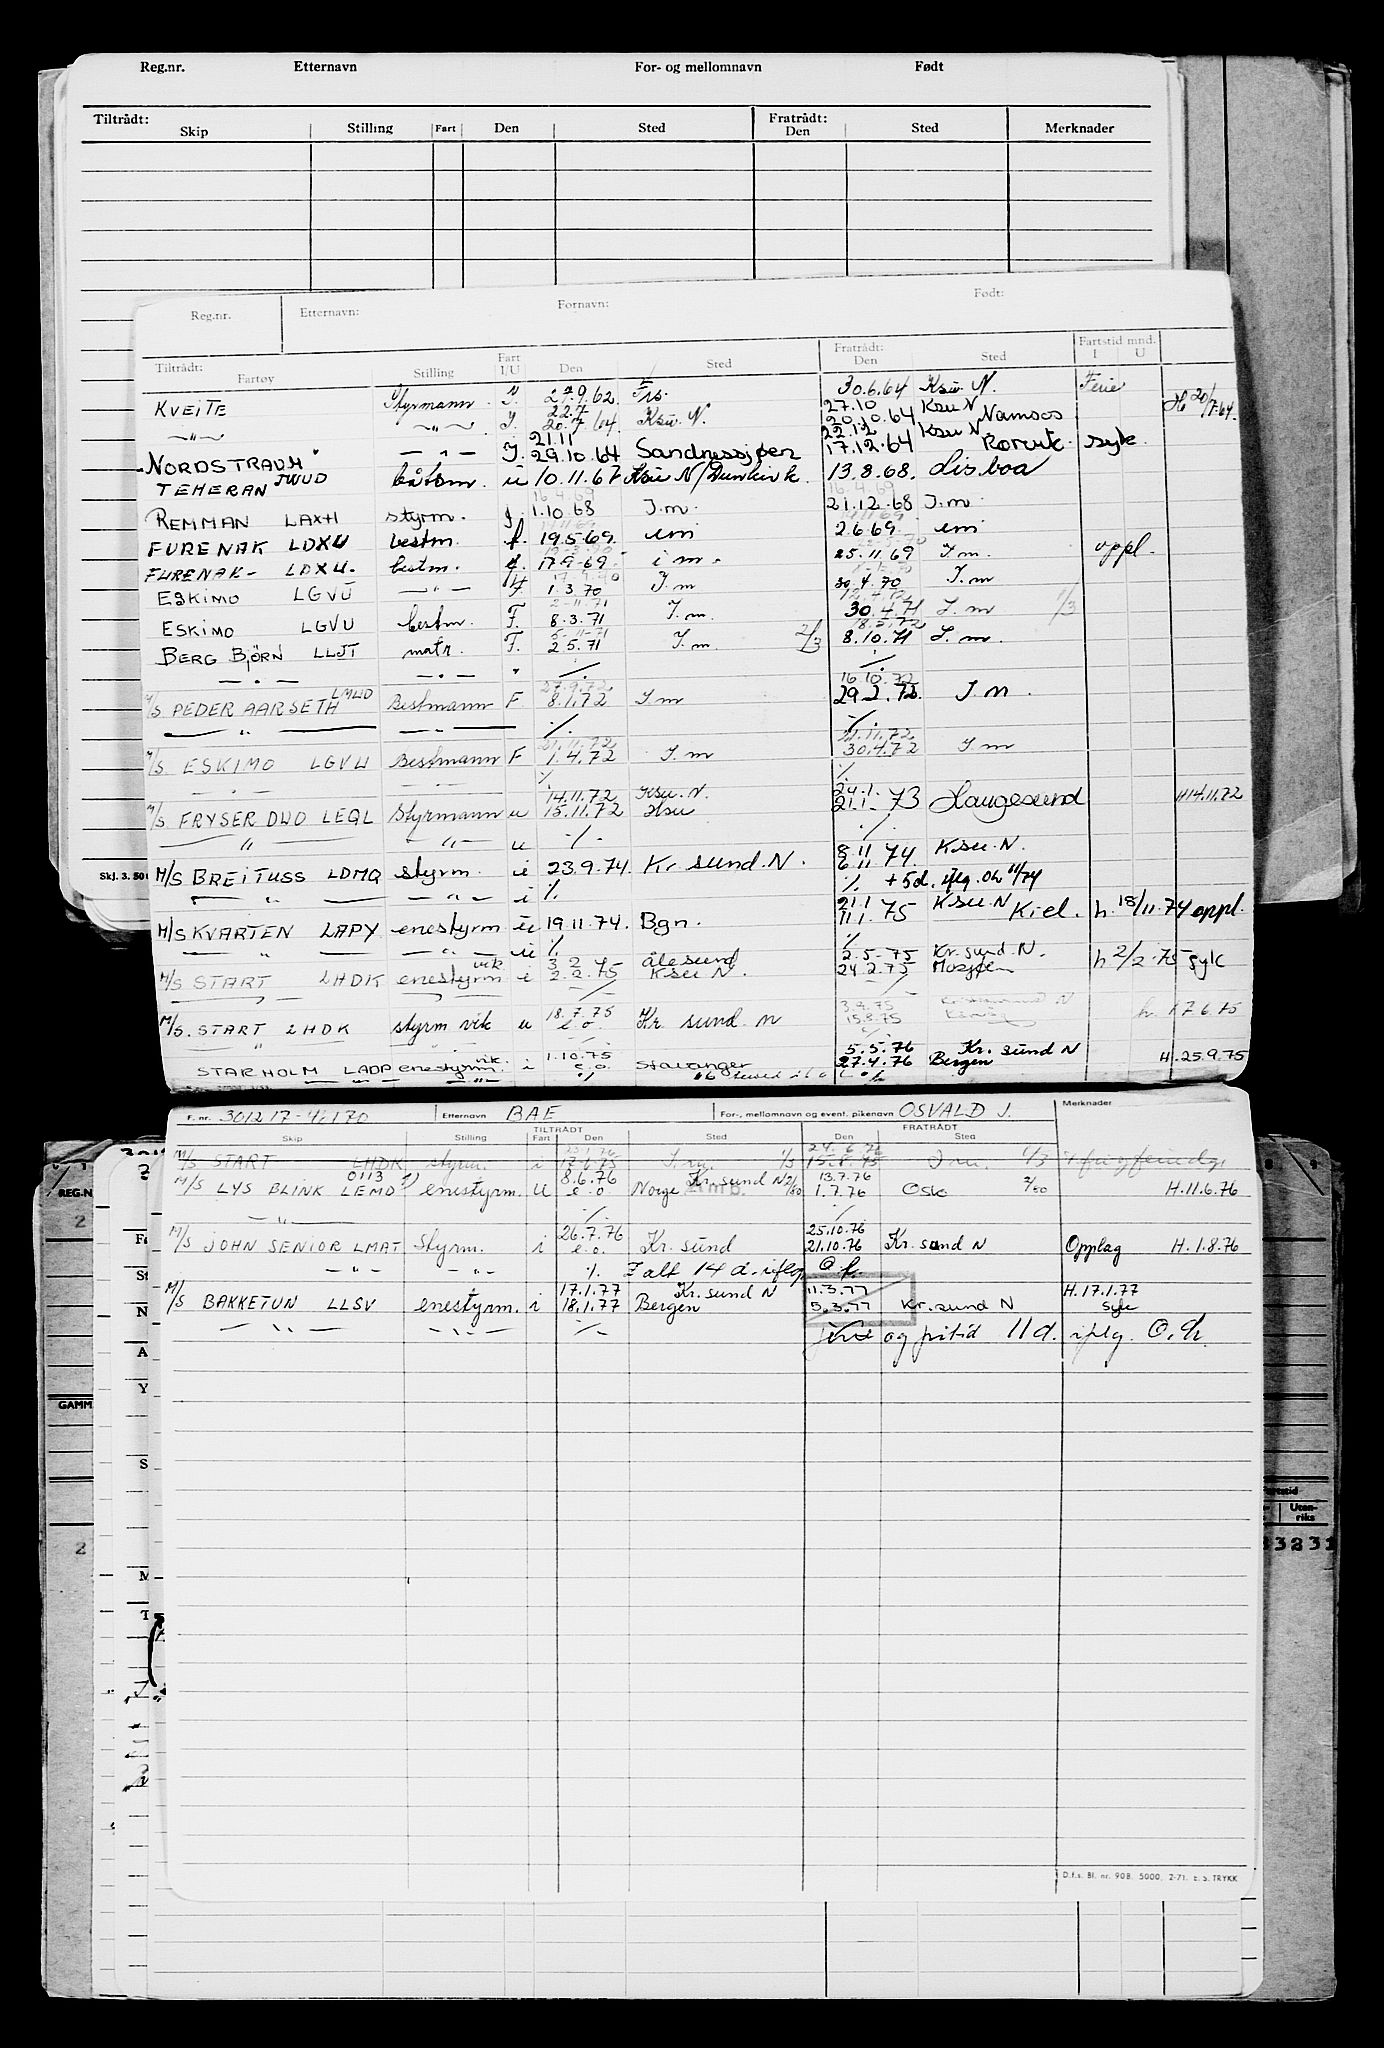 Reg.nr. Etternavn For- og mellomnavn Født
Tiltrådt: Skip Stilling Fart Den Sted Fratrådt: Den Sted Merknader
Reg.nr. Etternavn: Fornavn: Født:
Tiltrådt: Fartøy Stilling Fart I/U Den Sted Fratrådt: Den Sted Fartstid mnd. I U
KVEITE Styrmann 30.6.64 Ksu. N. Ferie
22.7 27.10 Ksu N H 20/7.64.
— " — — " — I. 20.7.64. Ksu. N. 20.10.64 Namsos
21.11 22.12 Ksu N
NORDSTRAUM — " — I. 29.10.64 Sandnessjøen 17.12.64 Rørvik. syk
TEHERAN JWUD båtsm. u 10.11.67 Ksu N/Dunkirk. 13.8.68. Lisboa
16.4.69 16.4.69
REMMAN LAXH styrm. 1.10 68 I.m. 21.12.68 I.m
FURENAK LDXU bestm. f. 19.5.69. im 2.6.69. im
FURENAK- LDXU. bestm. f. 17.9.69. i m. 25.11.69 I m. oppl.
ESKIMO LGVU — " — F. 1.3.70 I.m 30.4.70 I.m
2-11.71
ESKIMO LGVU bestm. F. 8.3.71 I.m. 30.4.71 I.m 11/3
BERG BJÖRN LLJT matr. F. 2.5.71 I.m. 2/3 8.10.71 I.m.
— " — — " — " ./. ./.
27.9.72. 16.10.72
M/S PEDER AARSETH LMWD Bestmann F 8.1.72 I m 29.2.72. I m.
" — " — ./. ./.
21.11.72 21.11.72
M/S ESKIMO LGVU Bestmann F 1.4.72 I.m 30.4.72 I m
— " — ./. ./.
14.11.72 Ksu. N. 24.1.
M/S FRYSER DUO LEQL Styrmann u 15.11.72 Ksu 21.1. 73 Haugesund H14.11.72
" — " — u ./. ./.
8.11 Ksu. N.
M/S BREITUSS LDMQ styrm. i 23.9.74. Kr.sund.N. 6.11 74.
— " — — " — i ./. ./. +5d. iflg. Oh 11/74
21.1 Ksu N
M/S KVARTEN LAPY enestyrm u 19.11.74. Bgn. 11.1. 75 Kiel. h. 18/11.74 oppl.
— " — — " — u ./. ./.
vik 3.2. ålesund 2.5.75 Kr.sund N.
M/S START LHDK enestyrm i 2.2.75 Ksu N. 24.2.75 Mosjøen h 2/2.75 syk
./. ./.
18.7.75 3.9.75 Kristiansund N
M/S. START LHDK styrm vik u e.o. Kr. sund. N 15.8.75 h. 17.6.75
" ./. ./.
vik. 1.10.75 5.5.76 Kr. sund N
STARHOLM LADP enestyrm. i e.o. Stavanger 27.4.76 Bergen H.25.9.75
F. nr. 301217-41170 Etternavn BAE For-, mellomnavn og event. pikenavn OSVALD J. Merknader
TILTRÅDT FRATRÅDT
Skip Stilling Fart Den Sted Den Sted
24.6.76
M/S START LHDK styrm. i 17.6.75 I.m. 1/3 15.8.75 I m. 1/3
0113 8.6.76 Kr.sund N 2/80 13.7.76
M/S LYS BLINK LEMD enestyrm. U e.o Norge 1.7.76 Oslo 2/80 H.11.6.76
— " — ./. ./.
26.7.76 25.10.76
M/S JOHN SENIOR LMAT Styrm. i e.o. Kr. sund 21.10.76 Kr. sund N Opplag H.1.8.76
— " — — " — ./. I alt 14 d. iflg. O.h.
17.1.77 Kr.sund N 11.3.77 H. 17.1.77
M/S BAKKETUN LLSV enestyrm. i 18.1.77 Bergen 5.3.77 Kr.sund N Syk
— " — — " — ./. ferie og fritid 11d. iflg. O.h.
D.f.s. Bl. nr. 908. 5000. 2-71. E. S. TRYKK
REG.N
GAMM
Fartstid
Uten-riks